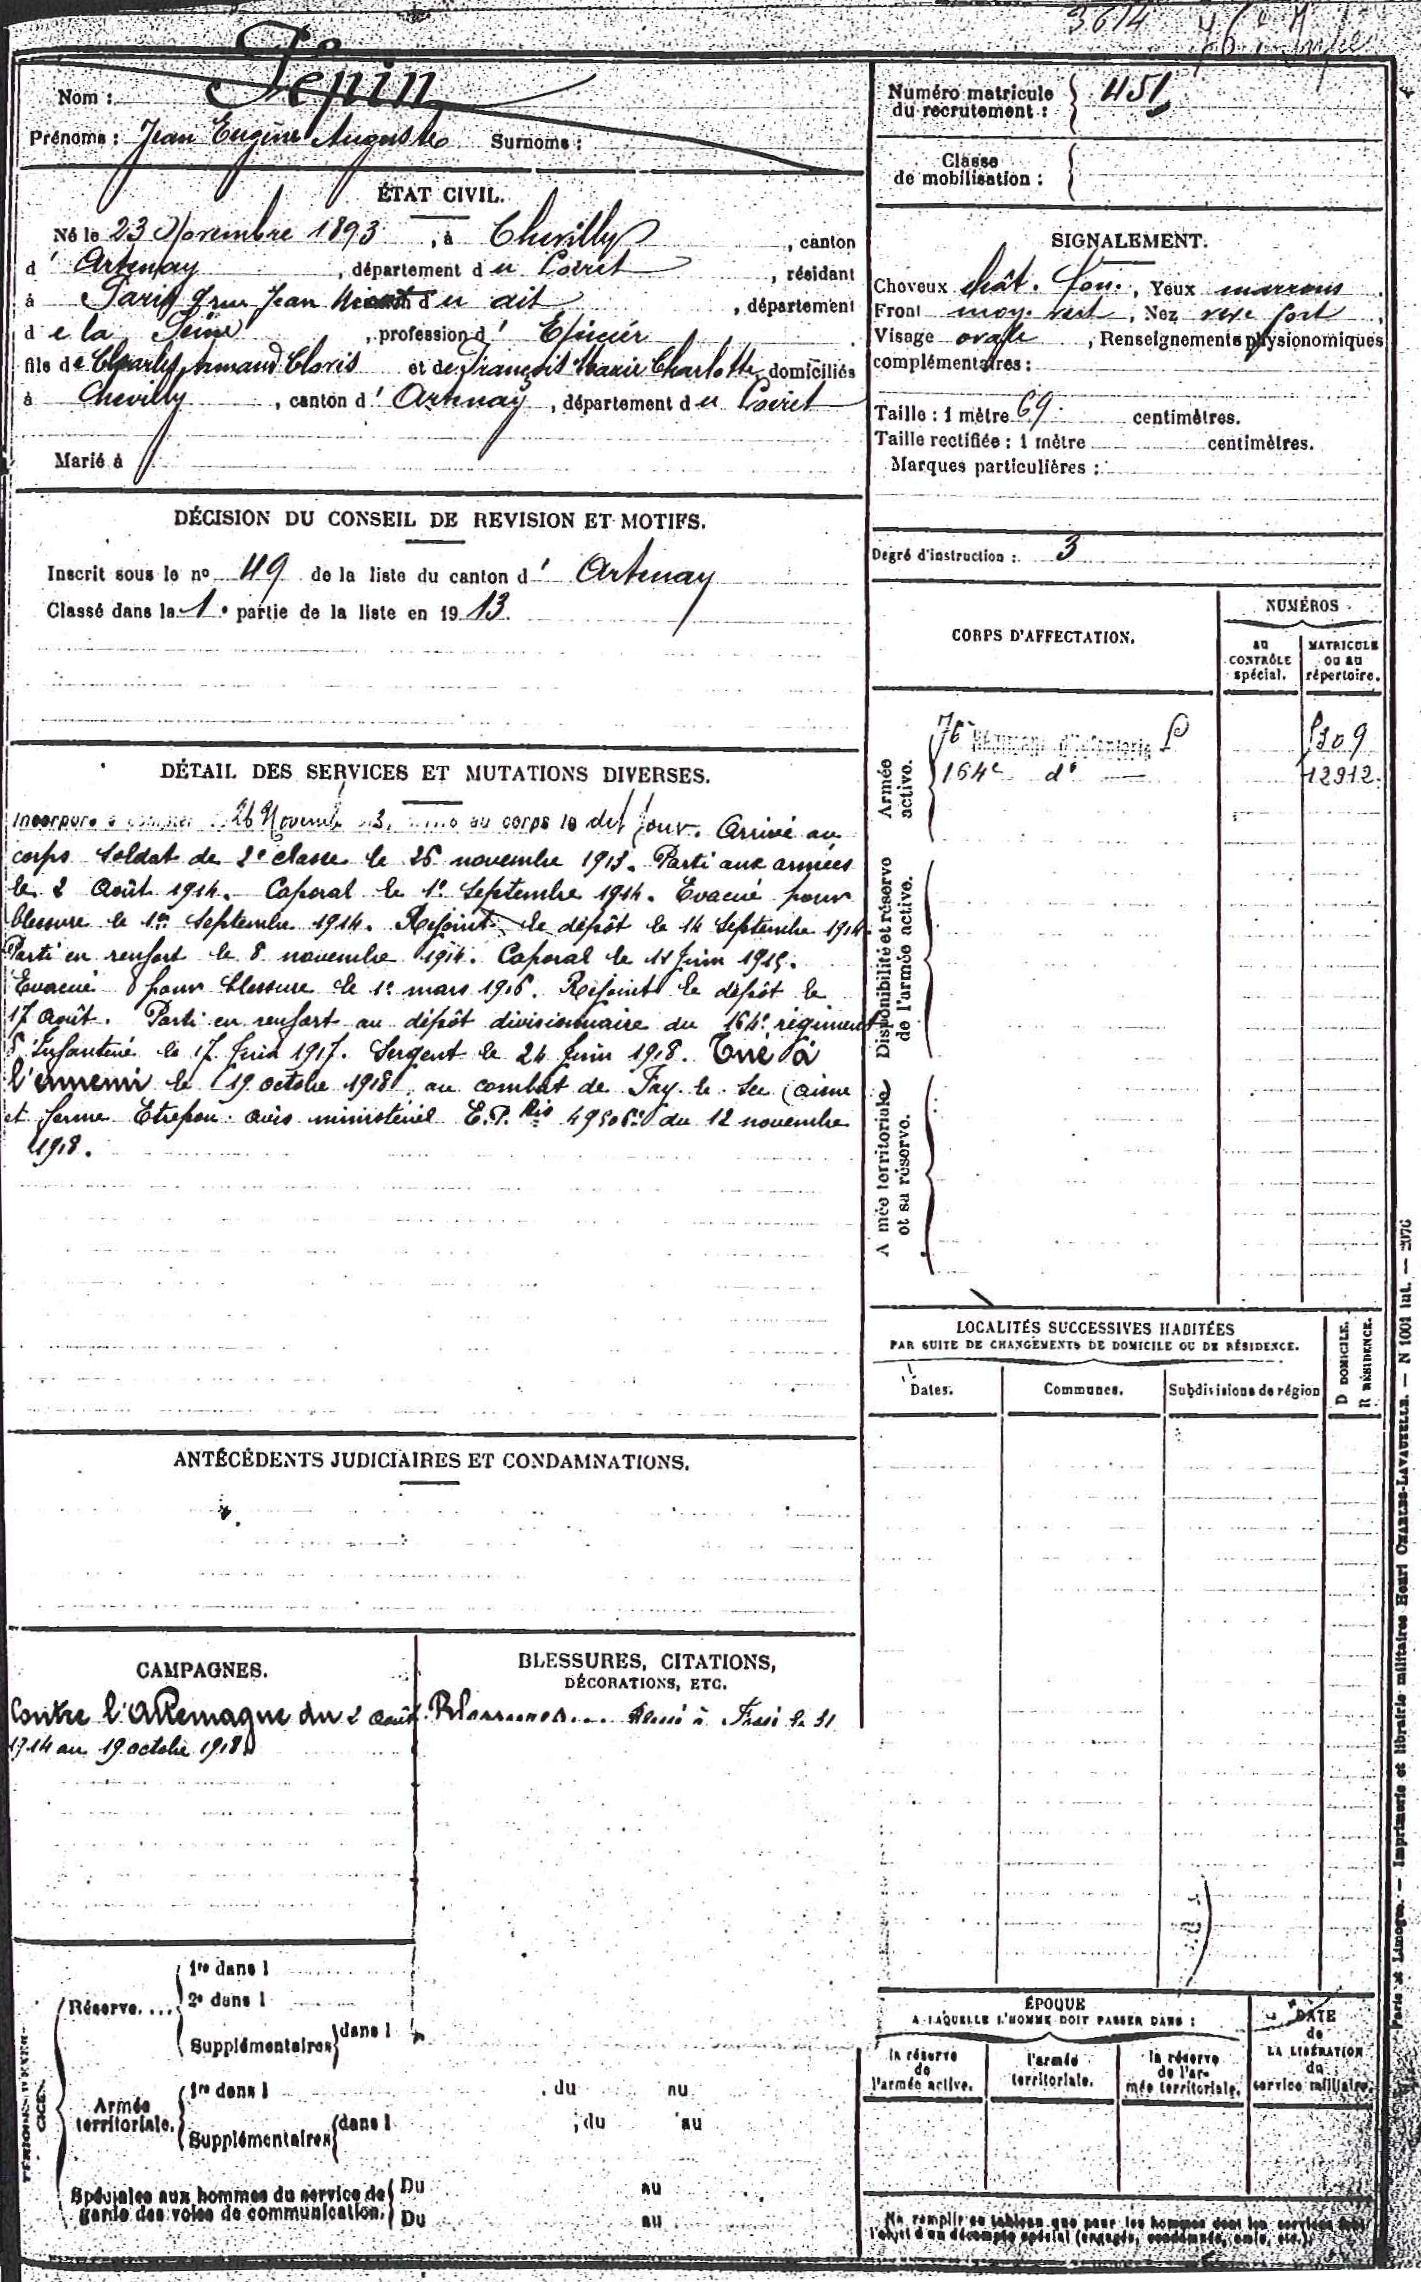 3614 76e
Nom : Pépin
Prénoms : Jean Eugène Auguste Surnoms :
ÉTAT CIVIL.
Né le 23 Novembre 1893, à Chevilly, canton
d' Artenay, département du Loiret, résidant
à Paris rue Jean du dit, département
de la Seine, profession d' Epicier
fils de Charles Armand Clovis et de François Marie Charlotte, domiciliés
à Chevilly, canton d' Artenay, département du Loiret
Marié à
DÉCISION DU CONSEIL DE REVISION ET MOTIFS.
Inscrit sous le no 49 de la liste du canton d' Artenay
Classé dans la 1e partie de la liste en 1913.
DÉTAIL DES SERVICES ET MUTATIONS DIVERSES.
Incorporé à compter 26 Novemb au corps le dit jour. Arrivé au
corps soldat de 2e classe le 26 novembre 1913. Parti aux armées
le 2 Août 1914. Caporal le 1e Septembre 1914. Evacué pour
blessure le 1er Septembre 1914. Rejoint le dépôt le 14 Septembre 1914
Parti en renfort le 8 novembre 1914. Caporal le 11 Juin 1915.
Evacué pour blessure le 1e mars 1916. Rejoint le dépôt le
17 Août. Parti en renfort au dépôt divisionnaire du 164e régiment
d'Infanterie le 17 Juin 1917. Sergent le 24 Juin 1918. Tué à
l'ennemi le 19 octobre 1918 au combat de Fay le Sec (aisne
et ferme Etrepou avis ministériel E.P. du 12 novembre
1918.
ANTÉCÉDENTS JUDICIAIRES ET CONDAMNATIONS.
CAMPAGNES.
Contre l'Allemagne du 2 août
1914 au 19 octobre 1918
BLESSURES, CITATIONS,
DÉCORATIONS, ETC.
Blessures... Blessé à le 31
PÉRIODES D'EXERCICE.
Réserve....
1re dans l
2e dans l
Supplémentaires dans l
Armée territoriale.
1re dans l , du au
Supplémentaires dans l , du au
Spéciales aux hommes du service de
garde des voies de communication.
Du au
Du au
Numéro matricule
du recrutement : 451
Classe
de mobilisation :
SIGNALEMENT.
Cheveux chât. fon., Yeux marrons
Front moy. vert, Nez fort,
Visage ovale, Renseignements physionomiques
complémentaires :
Taille : 1 mètre 69 centimètres.
Taille rectifiée : 1 mètre centimètres.
Marques particulières :
Degré d'instruction : 3
CORPS D'AFFECTATION.
NUMÉROS
AU CONTRÔLE spécial.
MATRICULE OU AU répertoire.
Armée active.
76e Régiment d'Infanterie
164e do — 12912
Disponibilité et réserve de l'armée active.
Armée territoriale et sa réserve.
LOCALITÉS SUCCESSIVES HABITÉES
PAR SUITE DE CHANGEMENTS DE DOMICILE OU DE RÉSIDENCE.
D DOMICILE.
R RÉSIDENCE.
Dates. Communes. Subdivisions de région
ÉPOQUE
A LAQUELLE L'HOMME DOIT PASSER DANS :
la réserve de l'armée active.
l'armée territoriale.
la réserve de l'armée territoriale.
DATE
de
LA LIBÉRATION
du
service militaire.
Ne remplir ce tableau que pour les hommes dont les services font
l'objet d'un décompte spécial (engagés, condamnés, omis, etc.).
Paris et Limoges. — Imprimerie et librairie militaires Henri CHARLES-LAVAUZELLE. — N 1001 int. — 2076